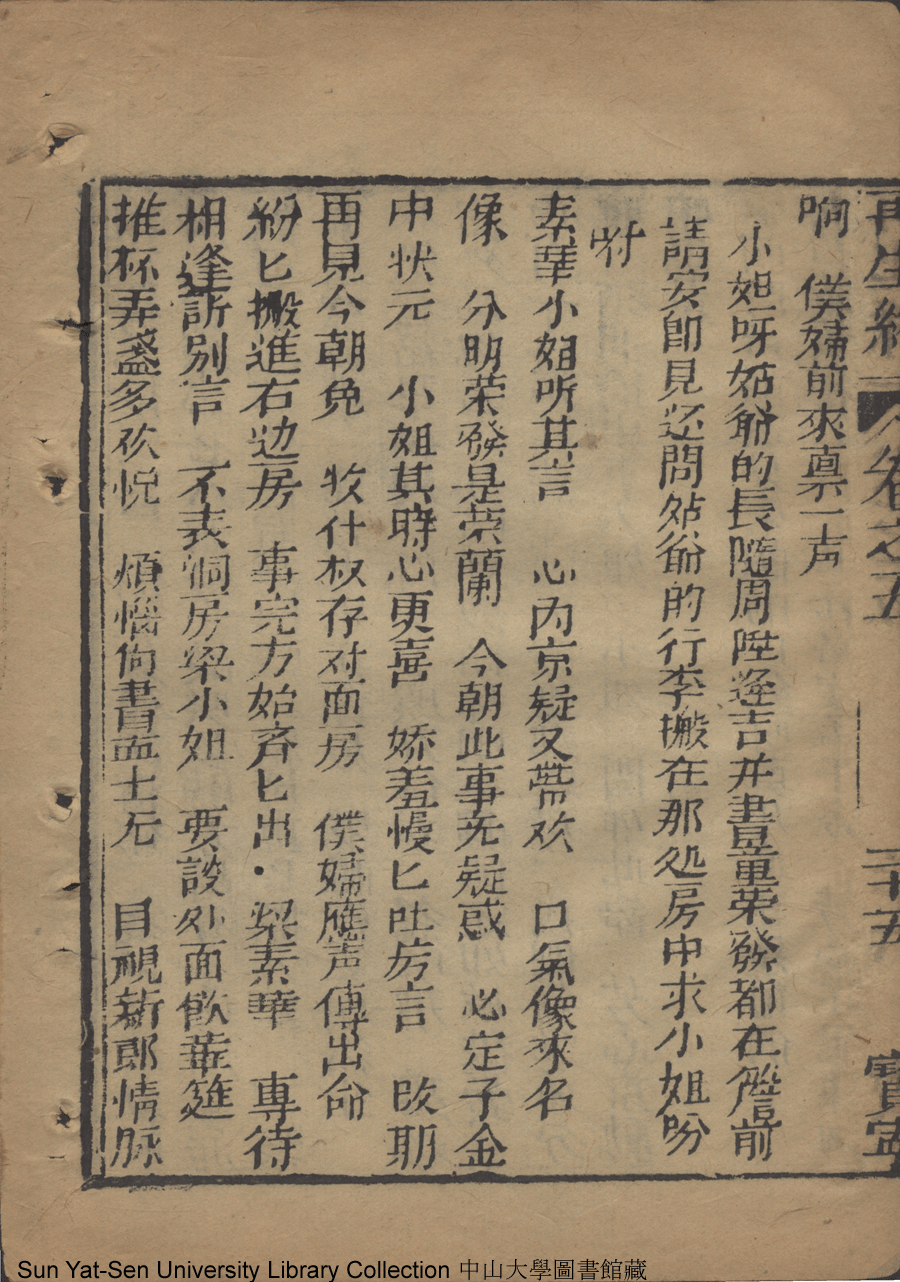 再生緣 卷之五 二十五 寳寧
响 僕婦前來禀一声
小姐呀姑爺的長隨周陞逢吉并書童荣發都在堦前
請安即見还問姑爺的行李搬在那処房中求小姐吩
咐
素華小姐听其言 心内京疑又帯欢 口氣像來名
像 分明荣發是荣蘭 今朝此事无疑惑 必定子金
中状元 小姐其時心更喜 娇羞慢匕吐芳言 改期
再見今朝免 收什权存对面房 僕婦應声傳出命
紛匕搬進右边房 事完方始斉匕出 梁素華 專待
相逢訴别言 不表洞房梁小姐 要談外面飲華筵
推杯弄盞多欢悦 煩惱尚書孟士元 目視新郎情脉
Sun Yat-Sen University Library Collection 中山大學圖書館藏